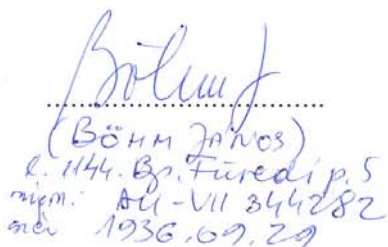 Böhm J
(BÖHM JÁNOS)
l. 1144. Bp. Füredi p. 5
szigsz.: AU-VII 344282
szül 1936.09.29